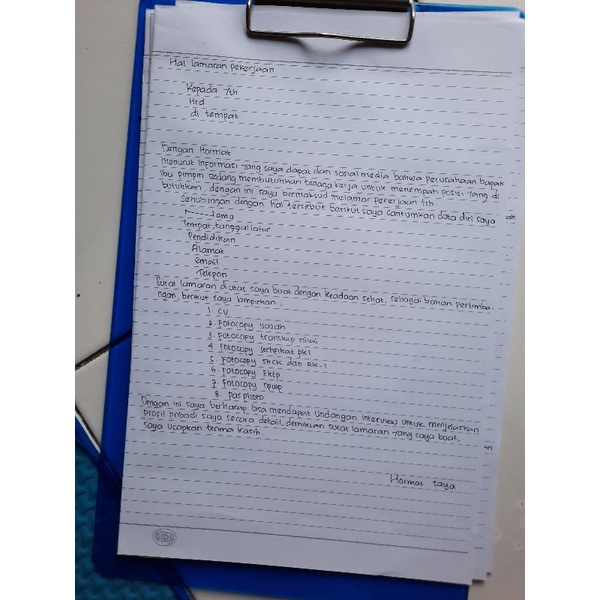 Hal lamaran pekerjaan
Kepada Yth
Hrd
di tempat
Dengan Hormat
Menurut informasi yang saya dapat dari sosial media bahwa perusahaan bapak
ibu pimpin sedang membutuhkan tenaga kerja untuk menempati posisi yang di
butuhkan, dengan ini saya bermaksud melamar pekerjaan tsb
Sehubungan dengan hal tersebut berikut saya cantumkan data diri saya
Nama
Tempat, tanggal lahir
Pendidikan
Alamat
email
Telepon
Surat lamaran di atas saya buat dengan keadaan sehat, sebagai bahan pertimba-
ngan, berikut saya lampirkan
1 CV
2. Fotocopy ijazah
3. Fotocopy transkip nilai
4 Fotocopy sertifikat pkl
5. Fotocopy skck dan AK-1
6. Fotocopy Ektp
7. Fotocopy npwp
8. pas photo
Dengan ini saya berharap bisa mendapat undangan interview untuk menjelaskan
profil pribadi saya secara detail, demikian surat lamaran yang saya buat,
saya ucapkan terima kasih.
Hormat saya
SIDU